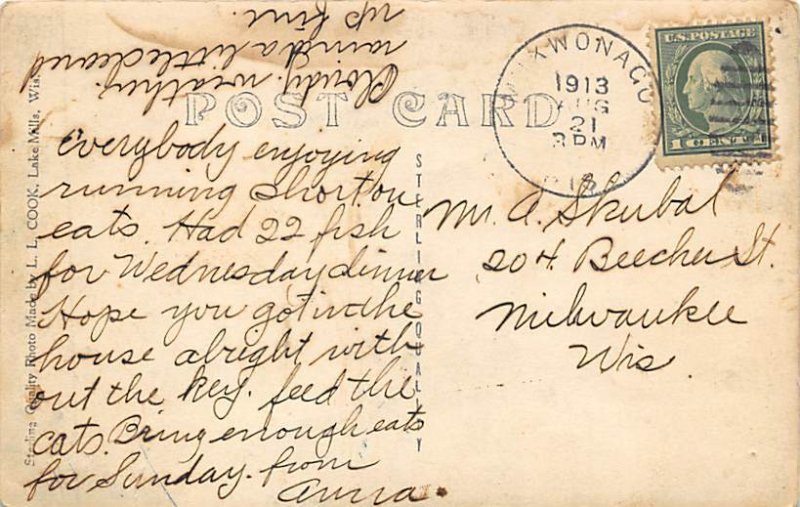 Cloridy weather
rained a little cleared
up fine.
POST CARD
MUKWONAGO
1913
AUG
21
3 PM
WIS.
U.S. POSTAGE
1 CENT 1
everybody enjoying
running short on
eats. Had 22 fish
for Wednesday dinner
Hope you got in the
house alright with
out the key. feed the
cats. Bring enough eats
for Sunday. from
Anna.
Mr. A. Skubal
204 Beecher St.
Milwaukee
Wis.
STERLING QUALITY
Sterling Quality Photo Made by L. L. COOK, Lake Mills, Wis.